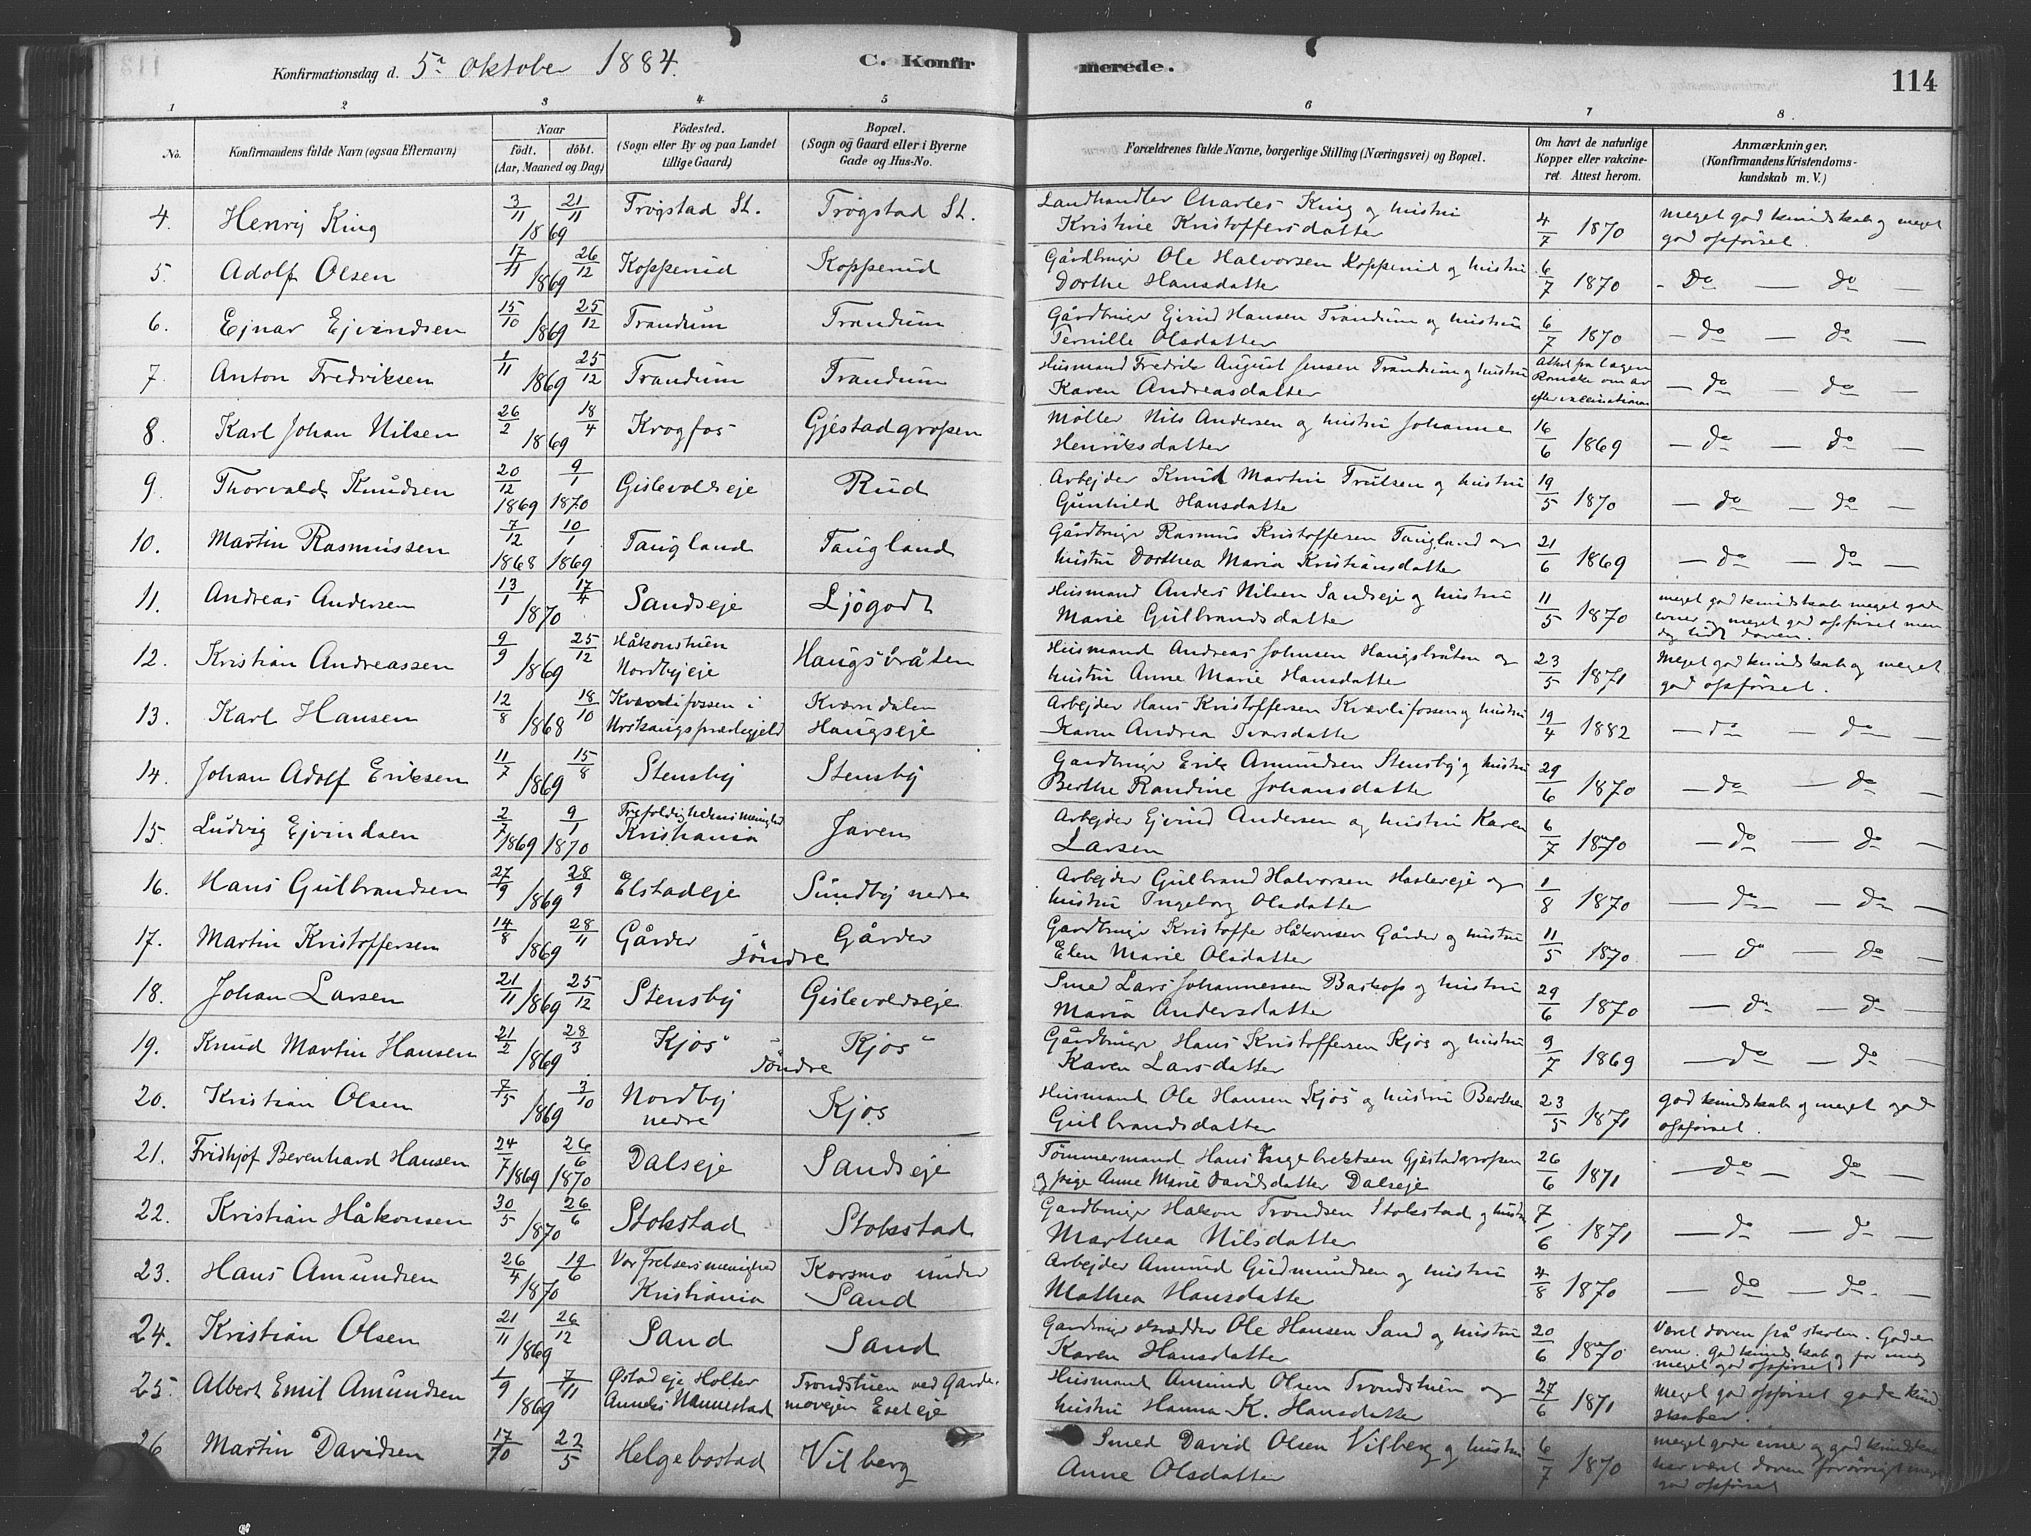 Konfirmationsdag d. 5te Oktober 1884.
C. Konfirmerede.
114
1 2 3 4 5 6 7 8.
No.
Konfirmandens fulde Navn (ogsaa Efternavn)
Naar
födt. döbt.
(Aar, Maaned og Dag)
Födested.
(Sogn eller By og paa Landet
tillige Gaard)
Bopæl.
(Sogn og Gaard eller i Byerne
Gade og Hus-No.
Forældrenes fulde Navne, borgerlige Stilling (Næringsvei) og Bopæl.
Om havt de naturlige
Kopper eller vakcine-
ret. Attest herom.
Anmærkninger.
(Konfirmandens Kristendoms-
kundskab m. V.)
4. Henrij King 3/11 21/11 1869 Trögstad St. Trögstad St. Landhandler Charles King og hustru
Kristine Kristoffersdatter 4/7 1870 meget god kundskab og meget
god opförsel.
5. Adolf Olsen 17/11 26/12 1869 Kopperud Kopperud Gårdbruger Ole Halvorsen Kopperud og hustru
Dorthe Hansdatter 6/7 1870 - Do — do —
6. Ejnar Ejvindsen 15/10 25/12 1869 Trandum Trandum Gårdbruger Ejvind Hansen Trandum og hustru
Pernille Olsdatter 6/7 1870 — do — do —
7. Anton Fredriksen 1/11 25/12 1869 Trandum Trandum Husmand Fredrik August Jensen Trandum og hustru
Karen Andreasdatter — do — do —
8. Karl Johan Nilsen 26/2 18/4 1869 Krogfos Gjestadgropen Möller Nils Andersen og hustru Johanne
Henriksdatter 16/6 1869 — do — do —
9. Thorvald Knudsen 20/12 1869 9/1 1870 Gislevoldseje Rud Arbejder Knud Martin Trulsen og hustru
Gunhild Hansdatter 19/5 1870 — do — do —
10. Martin Rasmussen 7/12 1868 10/1 1869 Taugland Taugland Gårdbruger Rasmus Kristoffersen Taugland og
hustru Dorthea Maria Kristiansdatter 21/6 1869 — do — do —
11. Andreas Andersen 13/1 17/4 1870 Sandseje Ljögodt Husmand Anders Nilsen Sandseje og hustru
Marie Gulbrandsdatter 11/5 1870 meget god kundskab meget gode
evner og meget god opförsel men
doven.
12. Kristian Andreassen 9/9 25/12 1869 Håkonstuen
Nordbyeje Haugsbråten Husmand Andreas Johnsen Haugsbråten og
hustru Anne Marie Hansdatter 23/5 1871 Meget god kundskab og meget
god opförsel.
13. Karl Hansen 12/8 18/10 1868 Kværlifossen i
Urskaugs præstegjeld Kværndalen
Haugseje Arbejder Hans Kristoffersen Kværlifossen og hustru
Karen Andrea Ivarsdatter 19/4 1882 — do — do —
14. Johan Adolf Eriksen 11/7 15/8 1869 Stensby Stensby Gårdbruger Erik Amundsen Stensby og hustru
Berthe Randine Johansdatter 29/6 1870 — do — do —
15. Ludvig Ejvindsen 2/7 1869 9/1 1870 Trefoldighedens menighed
Kristiania Jaren Arbejder Ejvind Andersen og hustru Karen
Larsen 6/7 1870 — do — do —
16. Hans Gulbrandsen 27/9 28/9 1869 Elstadeje Sundby nedre Arbejder Gulbrand Halvorsen Haslereje og
hustru Ingeborg Olsdatter 1/8 1870 — do — do —
17. Martin Kristoffersen 14/8 28/11 1869 Gårder söndre Gårder Gårdbruger Kristoffer Håkonsen Gårder og hustru
Elen Marie Olsdatter 11/5 1870 — do — do —
18. Johan Larsen 21/11 25/12 1869 Stensby Gislevoldseje Smed Lars Johannessen Baskop og hustru
Maria Andersdatter 29/6 1870 — do — do —
19. Knud Martin Hansen 21/2 28/3 1869 Kjos söndre Kjos Gårdbruger Hans Kristoffersen Kjos og hustru
Karen Larsdatter 9/7 1869 — do — do —
20. Kristian Olsen 7/5 3/10 1869 Nordby
nedre Kjos Husmand Ole Hansen Kjos og hustru Berthe
Gulbrandsdatter 23/5 1871 god kundskab og meget god
opförsel.
21. Fridhjof Berenhard Hansen 24/7 1869 26/6 1870 Dalseje Sandseje Tömmermand Hans Ingebrektsen Gjestadgropen
og pige Anne Marie Davidsdatter Dalseje 26/6 1871 — do — do —
22. Kristian Håkonsen 30/5 26/6 1870 Stokstad Stokstad Gårdbruger Håkon Trondsen Stokstad og hustru
Marthea Nilsdatter 7/6 1871 — do — do —
23. Hans Amundsen 26/4 19/6 1870 Vor Frelsers menighed
Kristiania Korsmo under
Sand Arbejder Amund Gudmundsen og hustru
Mathea Hansdatter 4/8 1870 — do — do —
24. Kristian Olsen 21/11 26/12 1869 Sand Sand Gårdbruger skrædder Ole Hansen Sand og hustru
Karen Hansdatter 20/6 1870 Været doven på skolen. Gode
evner. God kundskab og
meget god opförsel
25. Albert Emil Amundsen 1/9 7/11 1869 Østadeje Holter
Annex Nannestad Trondstuen ved Garder-
movejen Husmand Amund Olsen Trondstuen og
hustru Hanna K. Hansdatter 27/6 1871 Meget god opförsel gode kund
skaber.
26 Martin Davidsen 17/10 22/5 Helgebostad Vilberg Smed David Olsen Vilberg og hustru
Anne Olsdatter 6/7 1870 meget gode evner og god kundskab
har været doven forövrigt meget
god opförsel